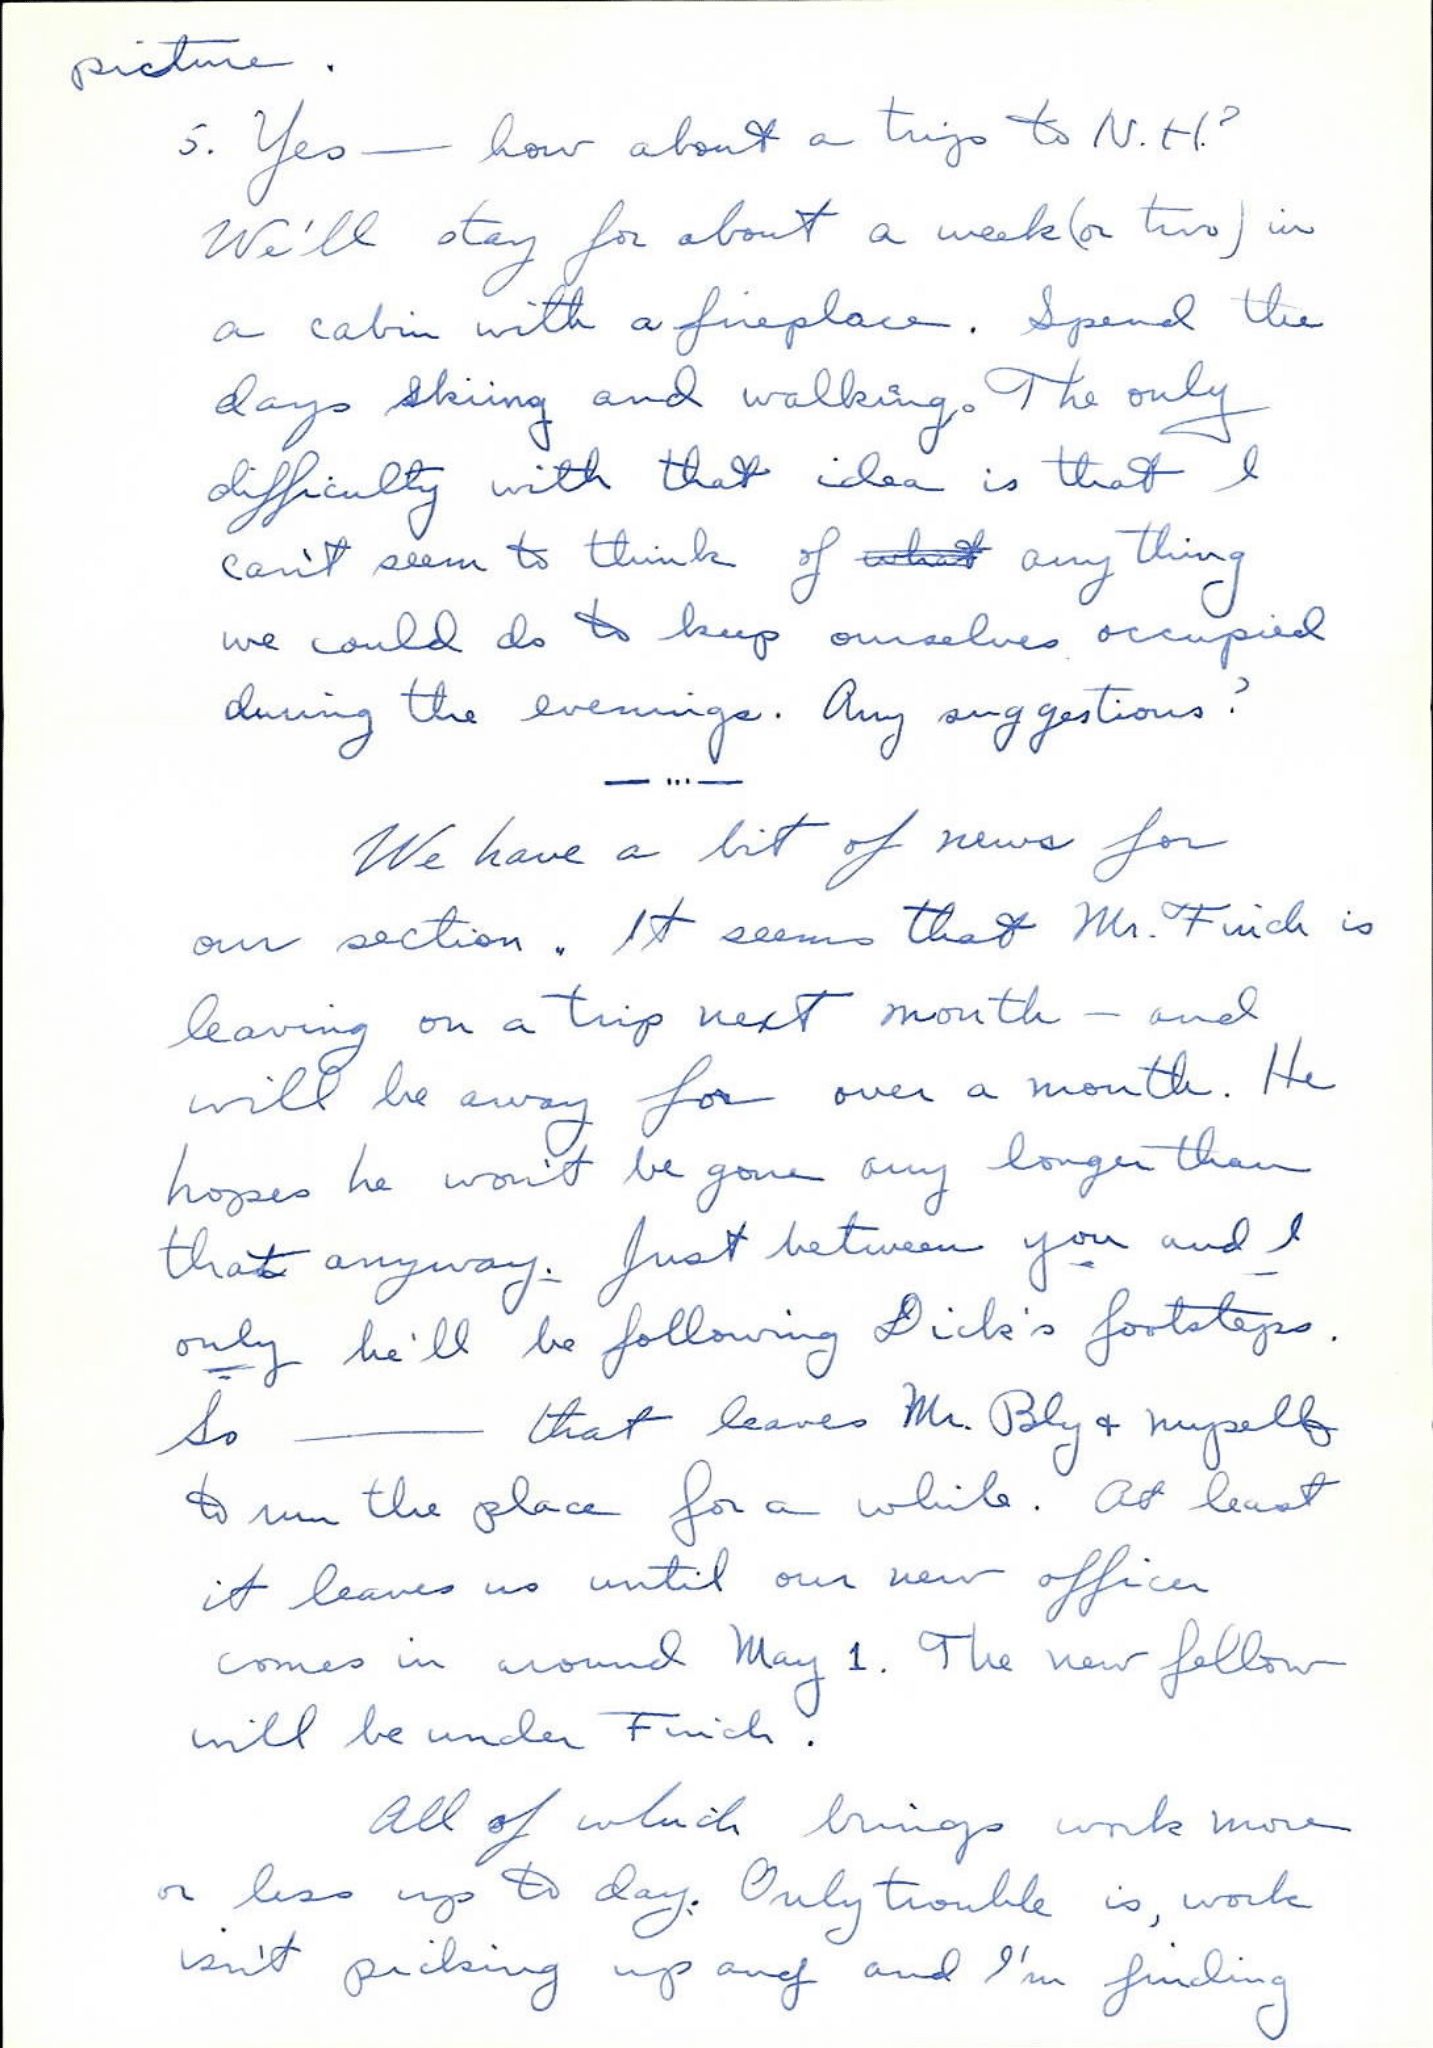 picture.
5. Yes — how about a trip to N.H.?
We'll stay for about a week (or two) in
a cabin with a fireplace. Spend the
days skiing and walking. The only
difficulty with that idea is that I
can't seem to think of what anything
we could do to keep ourselves occupied
during the evenings. Any suggestions?
— ... —
We have a bit of news for
our section. It seems that Mr. Finch is
leaving on a trip next month – and
will be away for over a month. He
hopes he won't be gone any longer than
that anyway. Just between you and I
only he'll be following Dick's footsteps.
So —— that leaves Mr. Bly & myself
to run the place for a while. At least
it leaves us until our new officer
comes in around May 1. The new fellow
will be under Finch.
All of which brings work more
or less up to day. Only trouble is, work
isn't picking up any and I'm finding